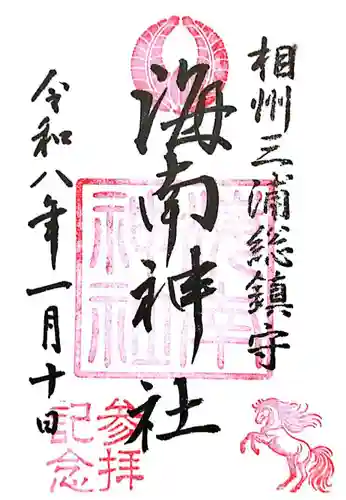 相州三浦総鎮守
海南神社
令和八年一月十日
海南神社
参拝
記念